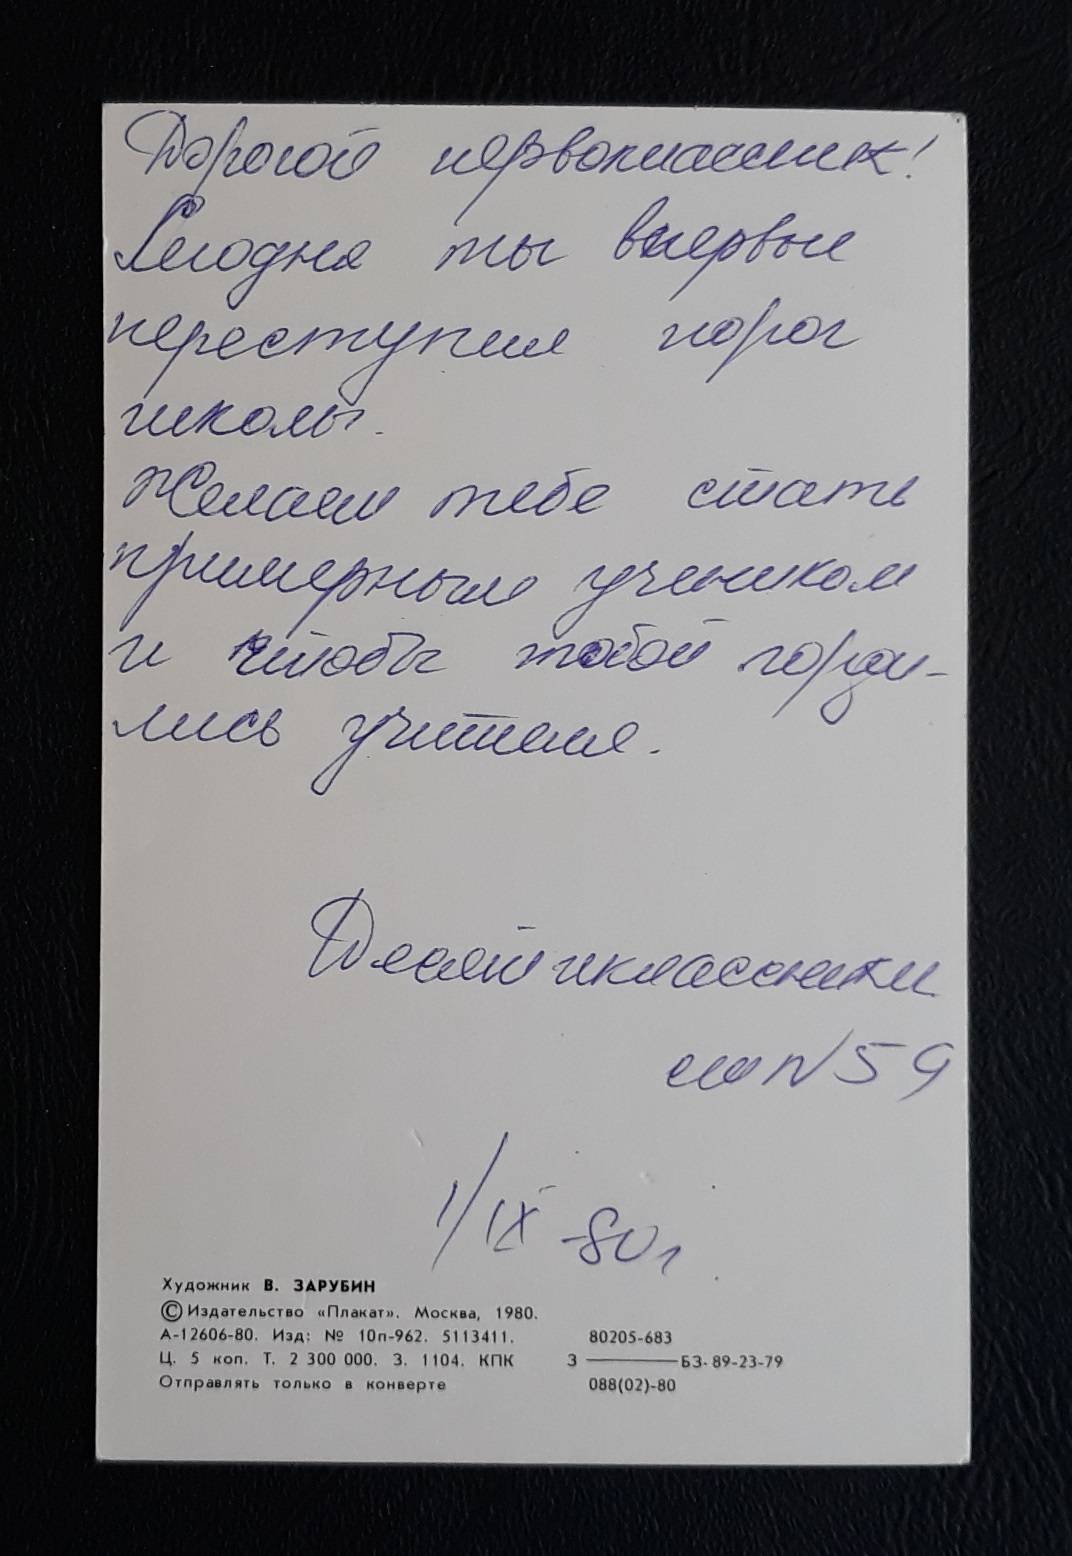 Дорогой первоклассник!
Сегодня ты впервые
переступил порог
школы.
Желаем тебе стать
примерным учеником
и чтобы тобой горди-
лись учителя.
Десятиклассники
сш N 59
1/IX-80г
Художник В. ЗАРУБИН
© Издательство «Плакат». Москва, 1980.
А-12606-80. Изд: № 10п-962. 5113411.
Ц. 5 коп. Т. 2 300 000. З. 1104. КПК
Отправлять только в конверте
80205-683
З ———— БЗ-89-23-79
088(02)-80